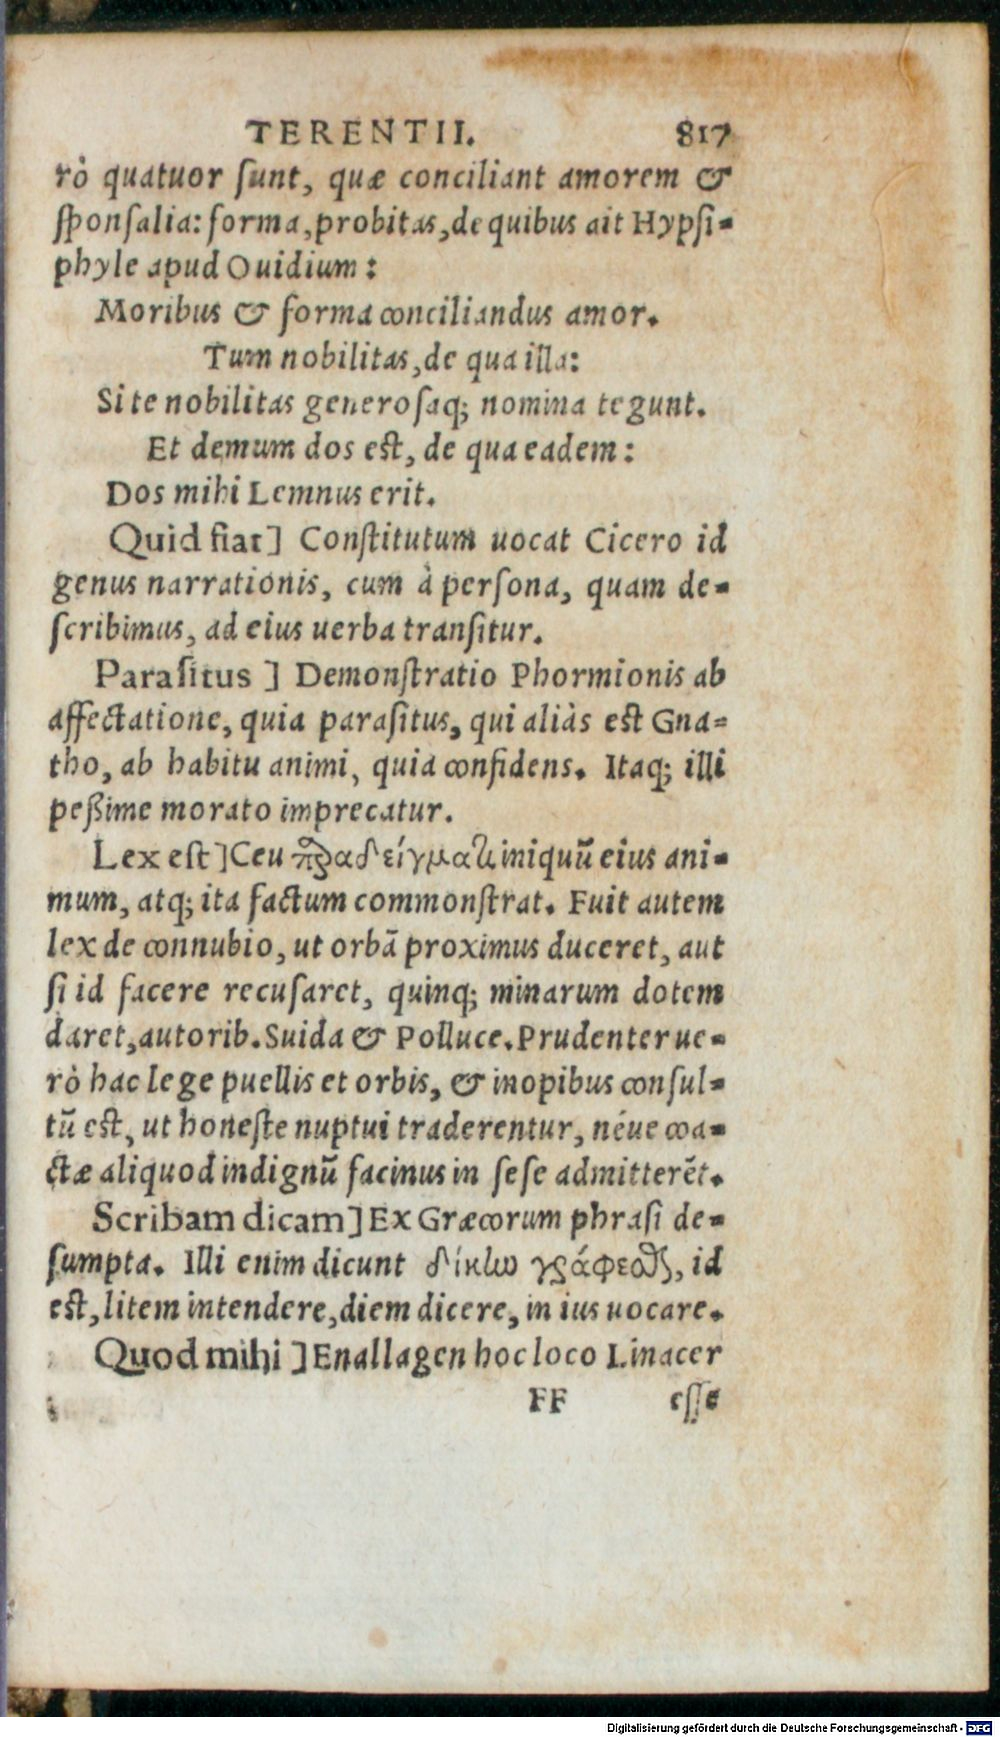 TERENTII. 817
rò quatuor ſunt, quæ conciliant amorem &
ſponſalia: forma, probitas, de quibus ait Hypſi-
phyle apud Ouidium:
Moribus & forma conciliandus amor.
Tum nobilitas, de qua illa:
Si te nobilitas generoſaq; nomina tegunt.
Et demum dos eſt, de qua eadem:
Dos mihi Lemnus erit.
Quid fiat] Conſtitutum uocat Cicero id
genus narrationis, cum à perſona, quam de-
ſcribimus, ad eius uerba tranſitur.
Paraſitus ] Demonſtratio Phormionis ab
affectatione, quia paraſitus, qui aliàs eſt Gna-
tho, ab habitu animi, quia confidens. Itaq; illi
peßime morato imprecatur.
Lex eſt] Ceu παραδείγματι iniquũ eius ani-
mum, atq; ita factum commonſtrat. Fuit autem
lex de connubio, ut orbã proximus duceret, aut
ſi id facere recuſaret, quinq; minarum dotem
daret, autorib. Suida & Polluce. Prudenter ue-
rò hac lege puellis et orbis, & inopibus conſul-
tũ eſt, ut honeſte nuptui traderentur, néue coa-
ctæ aliquod indignũ facinus in ſeſe admitterẽt.
Scribam dicam] Ex Græcorum phraſi de-
ſumpta. Illi enim dicunt δίκην γράφεσθαι, id
eſt, litem intendere, diem dicere, in ius uocare.
Quod mihi ] Enallagen hoc loco Linacer
FF eſſe
Digitalisierung gefördert durch die Deutsche Forschungsgemeinschaft - DFG